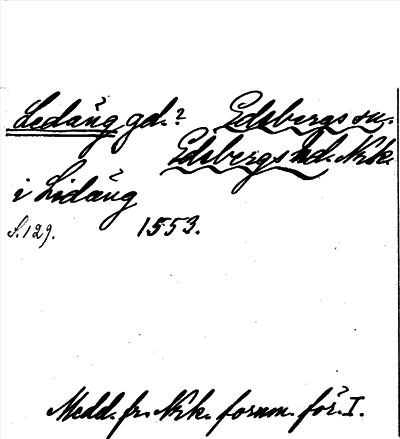 Ledäng gd.? Edsbergs sn.
Edsbergs hd. Nrk.
i Lidäng
S. 129. 1553.
Medd. fr. Nrk. fornm. för. I.